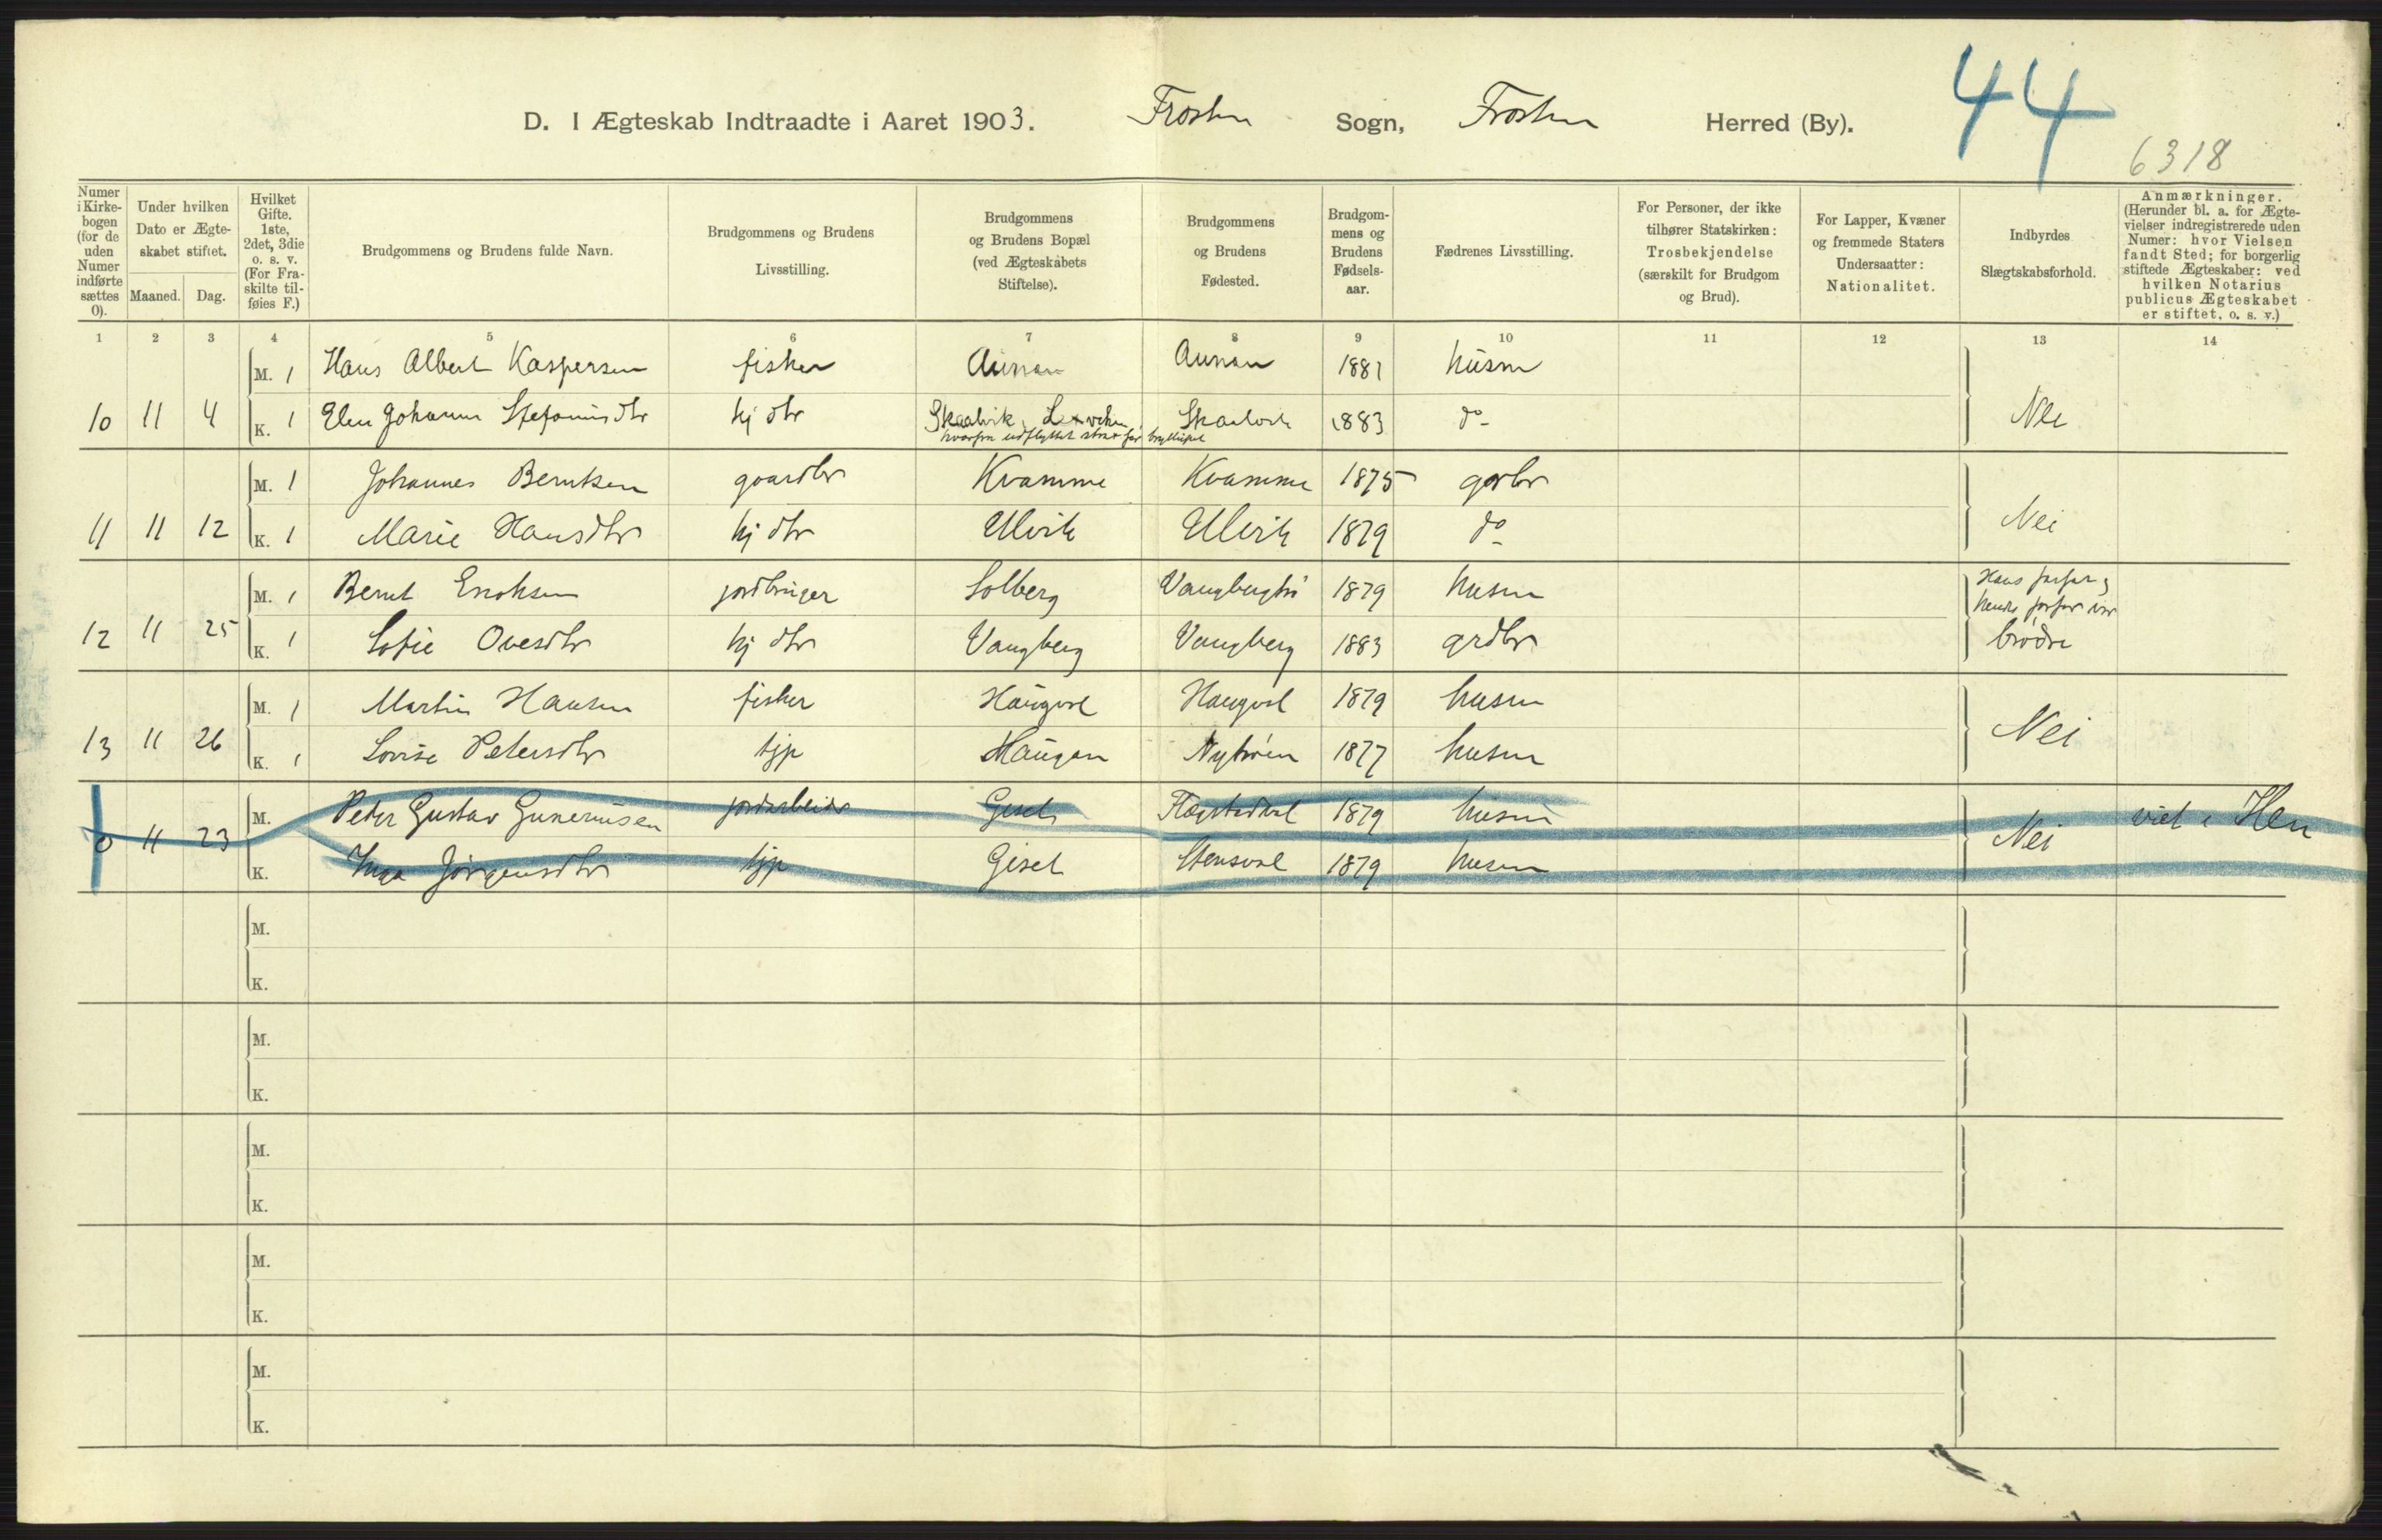 D. I Ægteskab Indtraadte i Aaret 1903. Frosten Sogn, Frosten Herred (By). 44
6318
Numer i Kirkebogen (for de uden Numer indførte sættes 0).
Under hvilken Dato er Ægteskabet stiftet.
Maaned. Dag.
Hvilket Gifte. 1ste, 2det, 3die o. s. v. (For Fraskilte tilføies F.)
Brudgommens og Brudens fulde Navn.
Brudgommens og Brudens Livsstilling.
Brudgommens og Brudens Bopæl (ved Ægteskabets Stiftelse).
Brudgommens og Brudens Fødested.
Brudgommens og Brudens Fødselsaar.
Fædrenes Livsstilling.
For Personer, der ikke tilhører Statskirken: Trosbekjendelse (særskilt for Brudgom og Brud).
For Lapper, Kvæner og fremmede Staters Undersaatter: Nationalitet.
Indbyrdes Slægtskabsforhold.
Anmærkninger. (Herunder bl. a. for Ægtevielser indregistrerede uden Numer: hvor Vielsen fandt Sted; for borgerlig stiftede Ægteskaber: ved hvilken Notarius publicus Ægteskabet er stiftet, o. s. v.)
1 2 3 4 5 6 7 8 9 10 11 12 13 14
M. 1 Hans Albert Kaspersen fisker Aunan Aunan 1881 husm
10 11 4 K. 1 Elen Johanna Stefanusdtr hj dtr Skaalvik, 1883 do Nei
M. 1 Johannes Berntsen gaardbr Kvamme Kvamme 1875 grbr
11 11 12 K. 1 Marie Hansdtr hj dtr Ulvik Ulvik 1879 do Nei
M. 1 Bernt Enoksen jordbruger Solberg 1879 husm Hans farfar og
hendes farfar var
12 11 25 K. 1 Sofie Ovesdtr hj dtr Vangberg Vangberg 1883 grdbr brødre
M. 1 Martin Hansen fisker Haugvol Haugvol 1879 husm
13 11 26 K. 1 Lovise Petersdtr tjp Haugan Nybrøen 1877 husm Nei
M. Peter Gustav Guneriusen jordarbeider Gisel 1879 husm viet i
0 11 23 K. Inga Jørgensdtr tjp Gisel Stensvol 1879 husm Nei
M.
K.
M.
K.
M.
K.
M.
K.
M.
K.